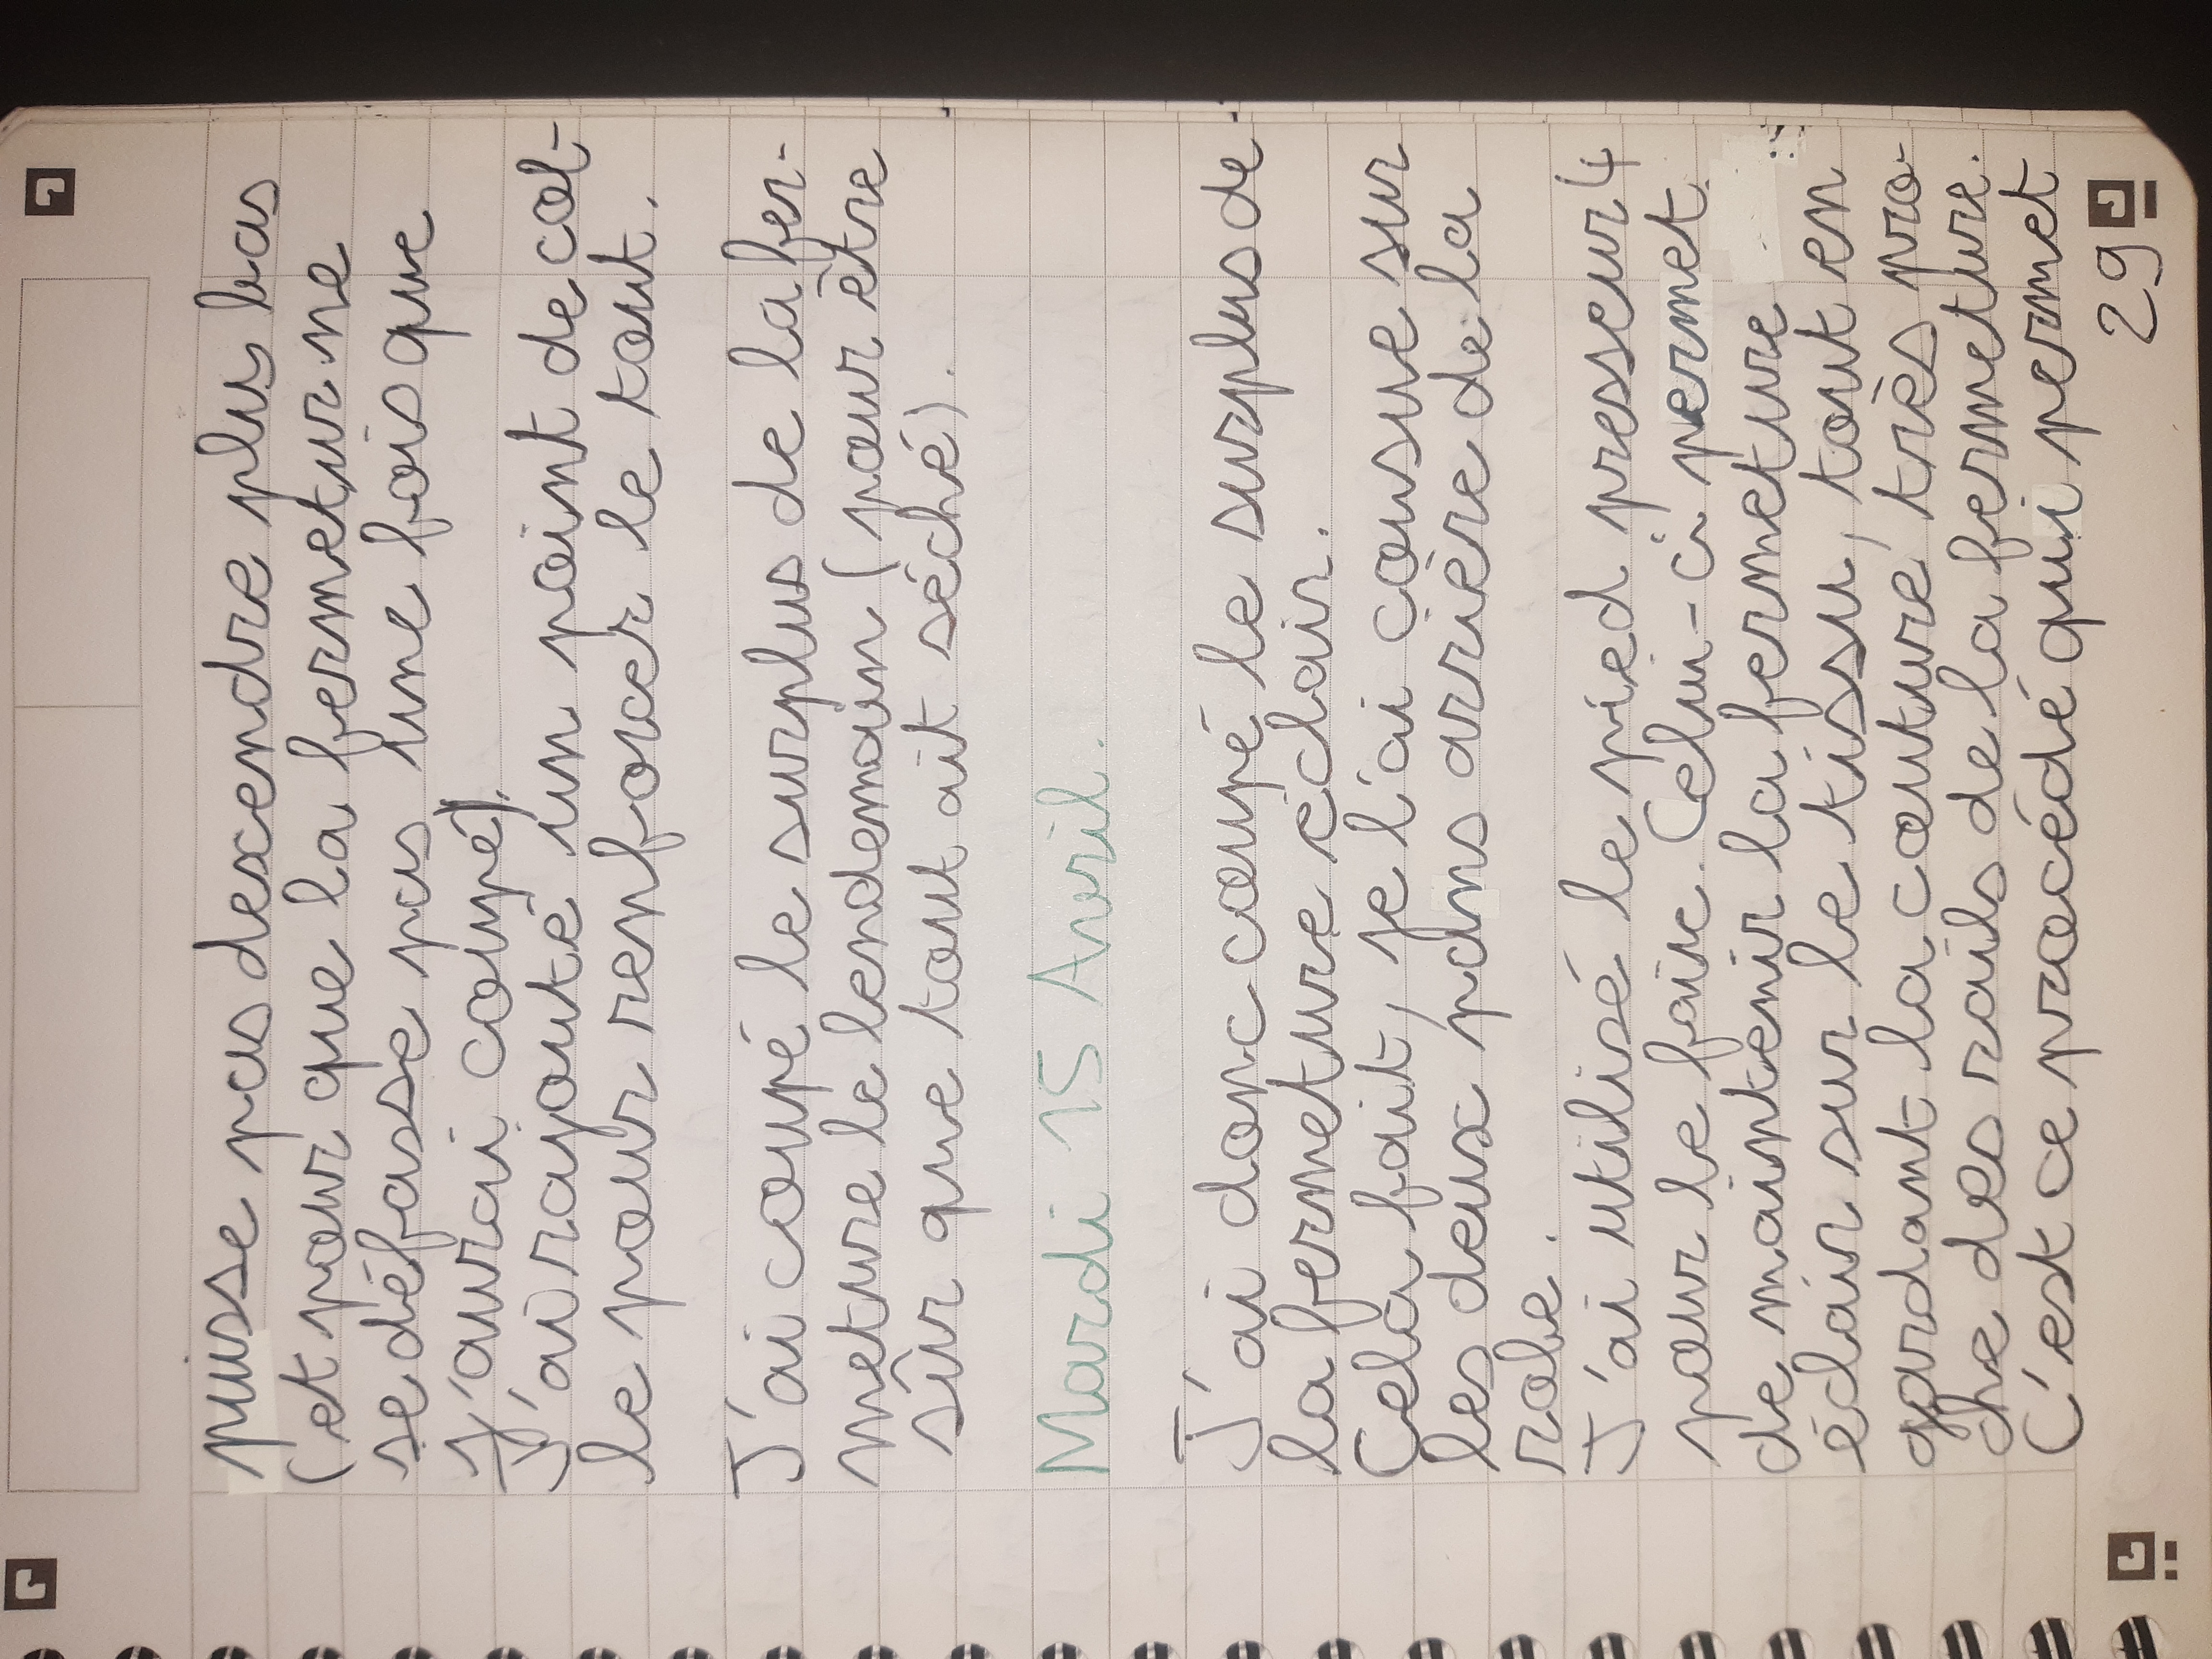 puisse pas descendre plus bas
(et pour que la fermetur ne
se défasse pas une fois que
j'aurai coupé).
J'ai rajouté un point de col-
le pour renforcer le tout.
J'ai coupé le surplus de la fer-
meture le lendemain (pour être
sûr que tout ait séché).
Mardi 15 Avril.
J'ai donc coupé le surplus de
la fermeture éclair.
Cela fait, je l'ai cousue sur
les deux pans arrière de la
robe.
J'ai utilisé le pied presseur 4
pour le faire. Celui-ci permet
de maintenir la fermeture
éclair sur le tissu, tout en
gardant la couture très pro-
che des rails de la fermeture.
C'est ce procédé qui permet
29